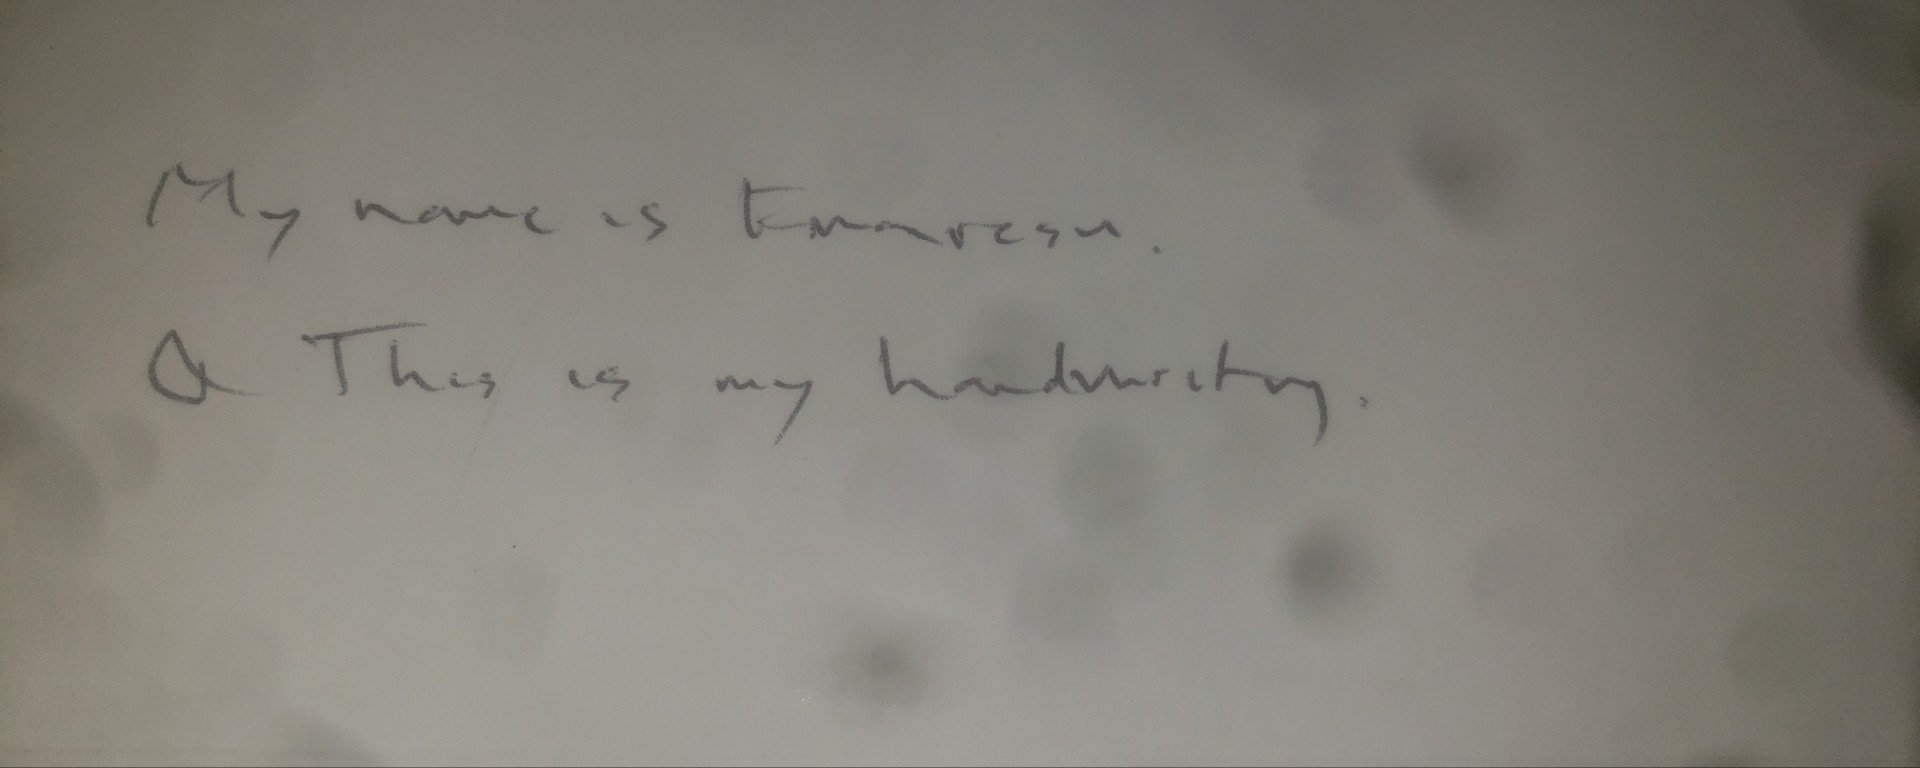 My name is
Q This is my handwriting.